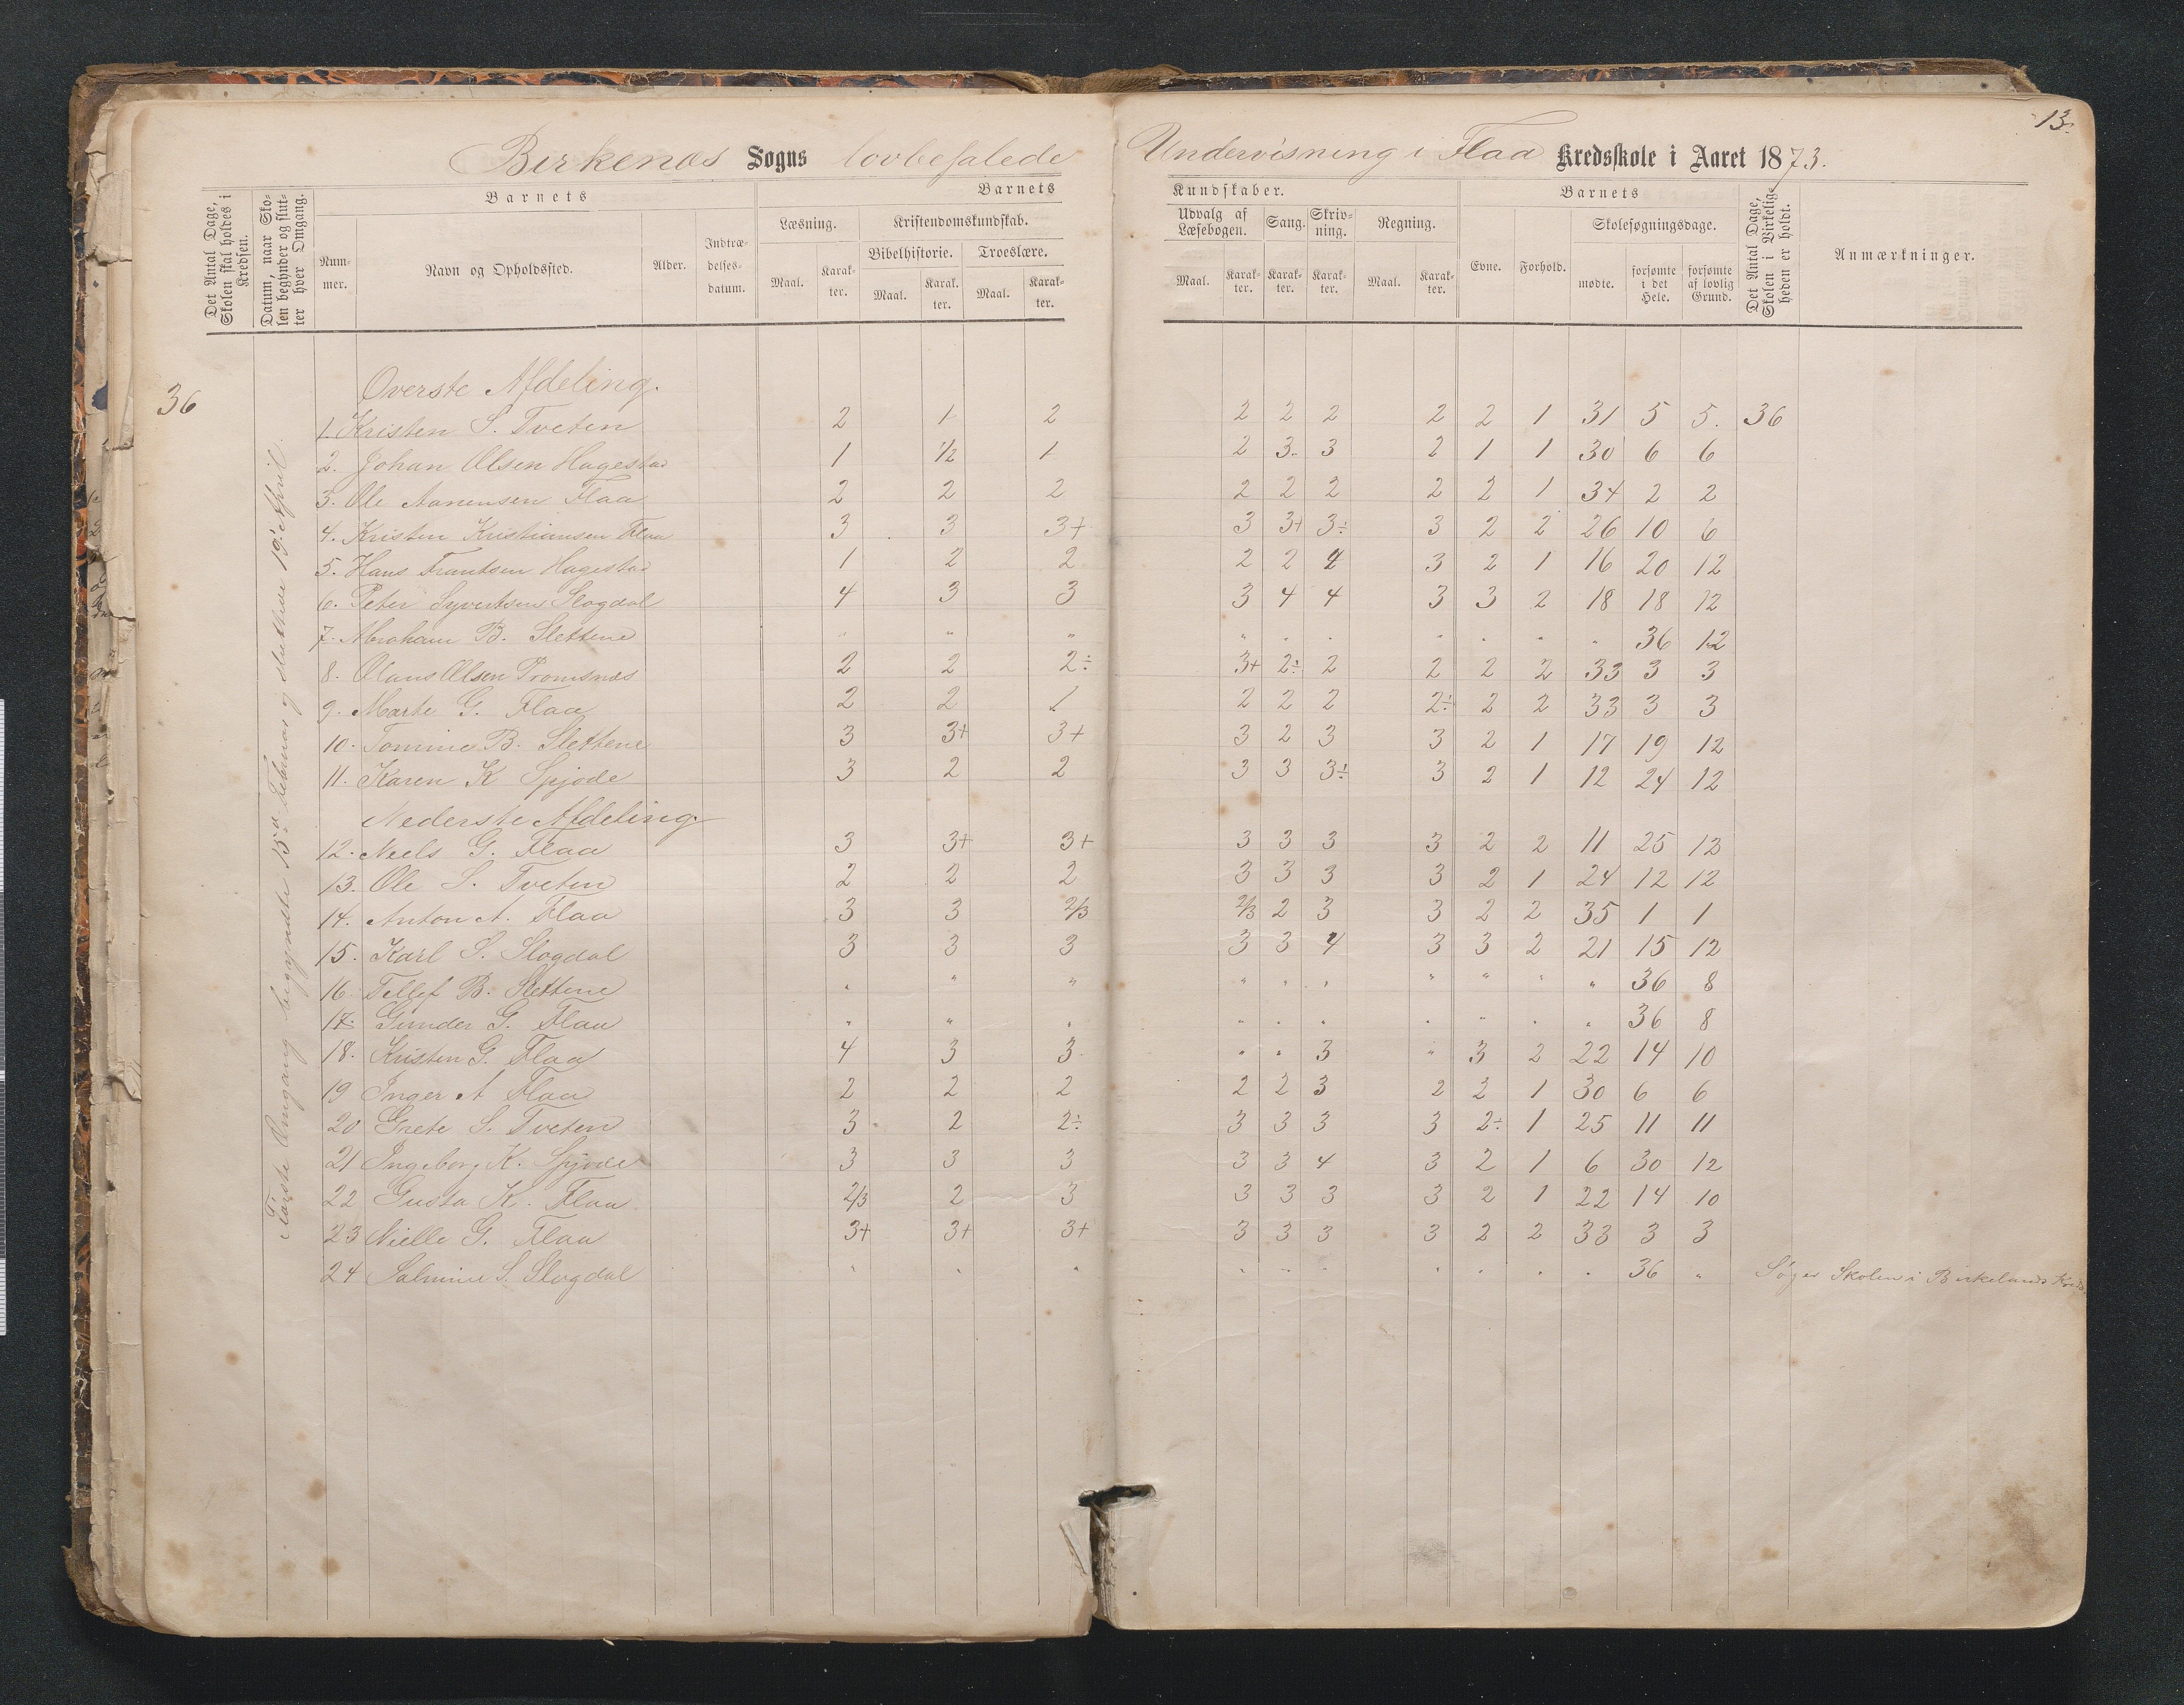 13.
Birkenæs Sogns lovbefalede Undervisning i Flaa Kredsskole i Aaret 1873.
Det Antal Dage, Skolen skal holdes i Kredsen.
Datum, naar Skolen begynder og slutter hver Omgang.
Barnets
Nummer.
Navn og Opholdssted.
Alder.
Indtrædelsesdatum.
Barnets Kundskaber.
Læsning.
Maal. Karakter.
Kristendomskundskab.
Bibelhistorie. Troeslære.
Maal. Karakter. Maal. Karakter.
Udvalg af Læsebogen.
Maal. Karakter.
Sang.
Karakter.
Skrivning.
Karakter.
Regning.
Maal. Karakter.
Barnets
Evne. Forhold.
Skolesøgningsdage.
mødte. forsømte i det Hele. forsømte af lovlig Grund.
Det Antal Dage, Skolen i Virkeligheden er holdt.
Anmærkninger.
36
Første Omgang begyndte 15de Februar og sluttede 19de April.
Øverste Afdeling.
1. Kristen S. Tveten 2 1 2 2 2 2 2 2 1 31 5 5. 36
2. Johan Olsen Hagestad 1 1/2 1 2 3 3 2 1 1 30 6 6
3. Ole Aanensen Flaa 2 2 2 2 2 2 2 2 1 34 2 2
4. Kristen Kristiansen Flaa 3 3 3+ 3 3+ 3÷ 3 2 2 26 10 6
5. Hans Frantsen Hagestad 1 2 2 2 2 4 3 2 1 16 20 12
6. Peter Syvertsen Slogdal 4 3 3 3 4 4 3 3 2 18 18 12
7. Abraham B. Slettene " " " " " " " " " " 36 12
8. Olaus Olsen Tromsnæs 2 2 2÷ 3+ 2÷ 2 2 2 2 33 3 3
9. Marte G. Flaa 2 2 1 2 2 2 2÷ 2 2 33 3 3
10. Tomine B. Slettene 3 3+ 3+ 3 2 3 3 2 1 17 19 12
11. Karen K Spjode 3 2 2 3 3 3÷ 3 2 1 12 24 12
Nederste Afdeling
12. Neels G. Flaa 3 3+ 3+ 3 3 3 3 2 2 11 25 12
13. Ole S. Tveten 2 2 2 3 3 3 3 2 1 24 12 12
14. Anton A. Flaa 3 3 2/3 2/3 2 3 3 2 2 35 1 1
15. Karl S. Slogdal 3 3 3 3 3 4 3 3 2 21 15 12
16. Tellef B. Slettene " " " " " " " " " " 36 8
17. Gunder G. Flaa " " " " " " " " " " 36 8
18. Kristen G. Flaa 4 3 3 " " 3 " 3 2 22 14 10
19 Inger A Flaa 2 2 2 2 2 3 2 2 1 30 6 6
20 Grete S. Tveten 3 2 2÷ 3 3 3 3 2÷ 1 25 11 11
21 Ingeborg K. Spjode 3 3 3 3 3 4 3 2 1 6 30 12
22 Gusta K. Flaa 2/3 2 3 3 3 3 3 2 1 22 14 10
23 Nielle G. Flaa 3+ 3+ 3+ 3 3 3 3 2 2 33 3 3
24 Salmine S. Slogdal " " " " " " " " " " 36 " Søger Skolen i Birkelands Kreds